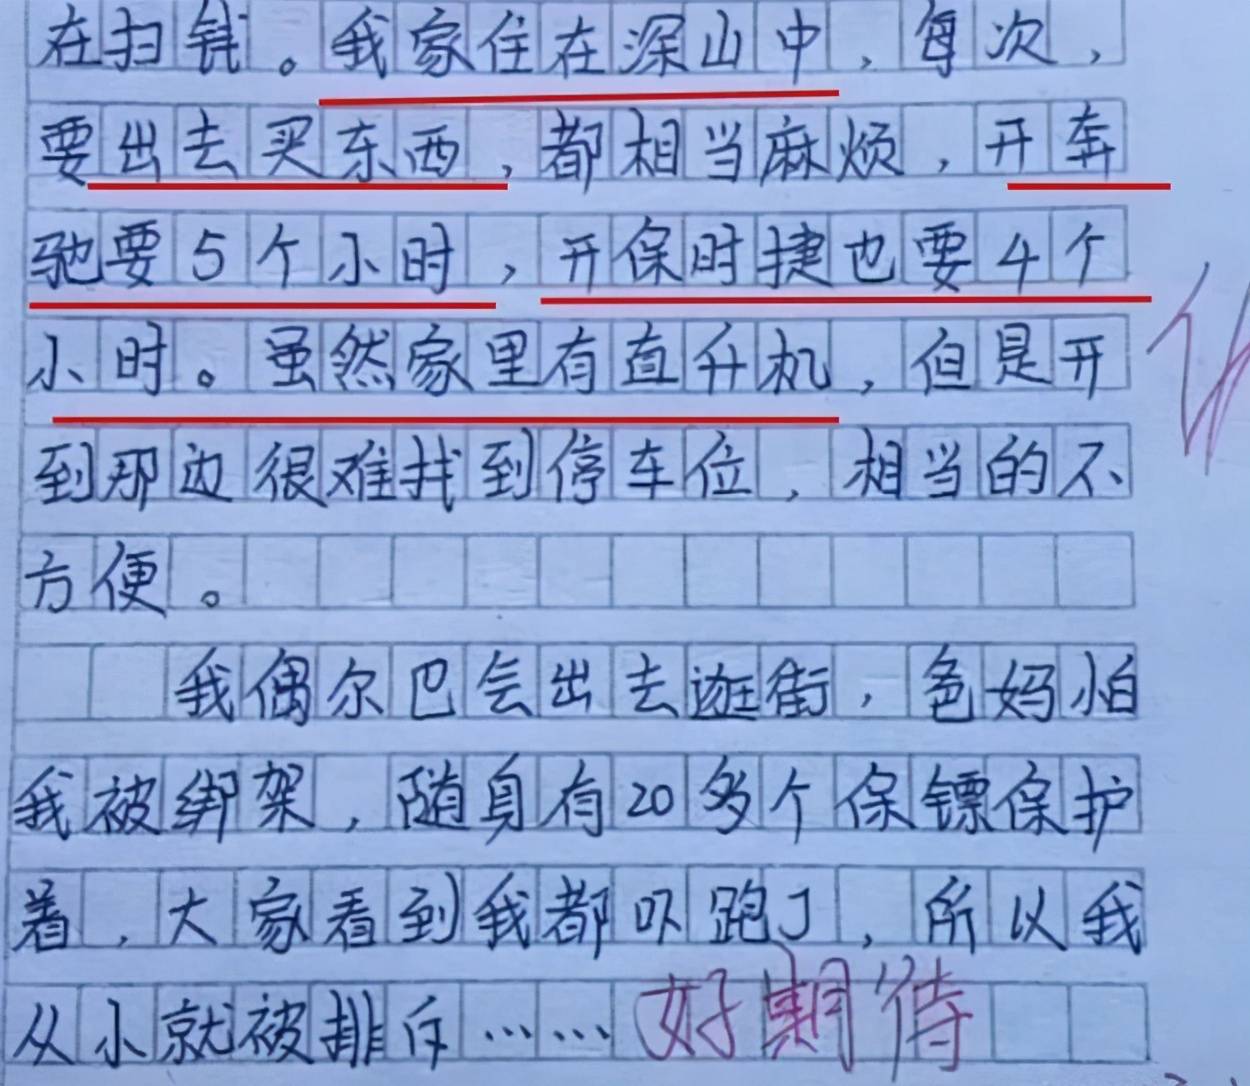 在扫钱。我家住在深山中，每次，
要出去买东西，都相当麻烦，开奔
驰要5个小时，开保时捷也要4个
小时。虽然家里有直升机，但是开
到那边很难找到停车位，相当的不
方便。
我偶尔巴会出去逛街，爸妈怕
我被绑架，随身有20多个保镖保护
着，大家看到我都吓跑了，所以我
从小就被排斥……
好期待